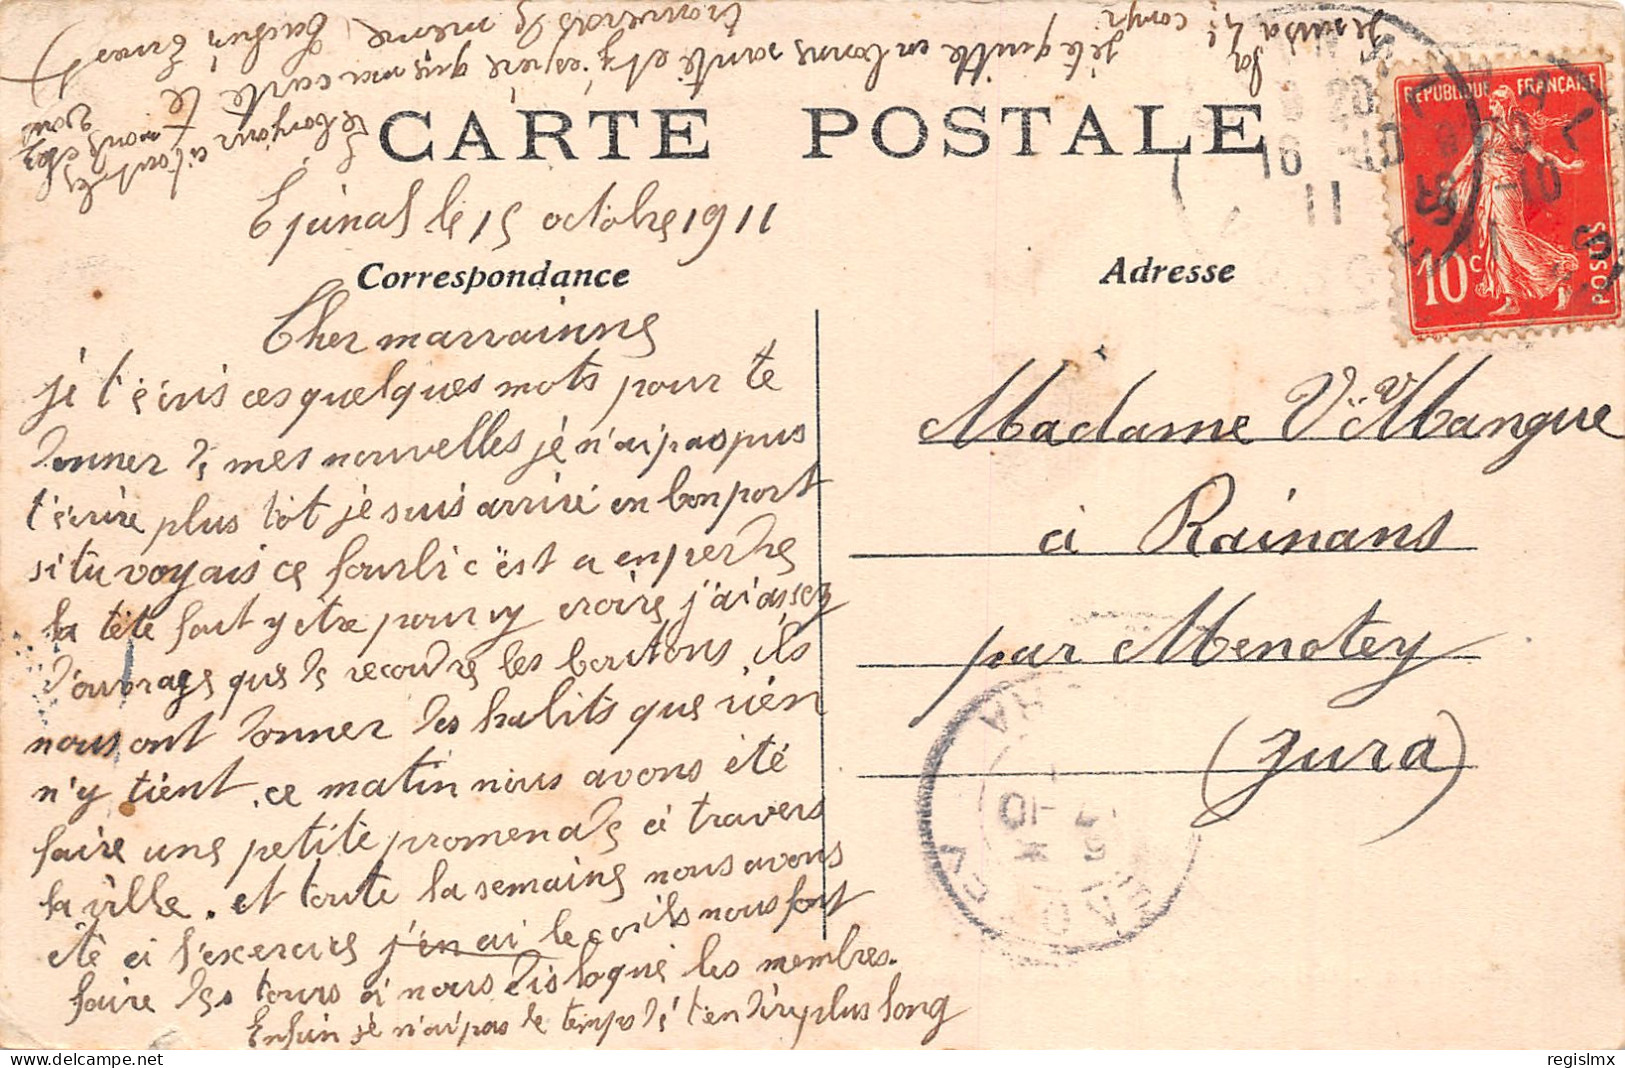 CARTE POSTALE
Epinal le 15 octobre 1911
Correspondance
Cher marrainne
je t'écris ces quelques mots pour te
donner de mes nouvelles je n'ai pas pus
t'écrire plus tôt je suis arrivé en bon port
si tu voyais ce fourbi c'ëst a en perdre
la tête faut y être pour y croire j'ai assez
d'ouvrage que de recoudre les boutons, ils
nous ont donner des habits que rien
n'y tient. ce matin nous avons été
faire une petite promenade à travers
la ville. et toute la semaine nous avons
été à l'exercice j'en ai le ils nous font
faire des tours à nous disloqué les membres.
Enfin je n'ai pas le temps de t'en dire plus long
je te quitte en bonne santé et j'espère que ma carte te
trouveras de meme,
le bonjour à toutes
chez vous
Je suis a la 4e comp.
Adresse
Madame Vve Mangue
à Rainans
par Menotey
(Jura)
REPUBLIQUE FRANÇAISE
10c
POSTES
16 -10
11
regislmx